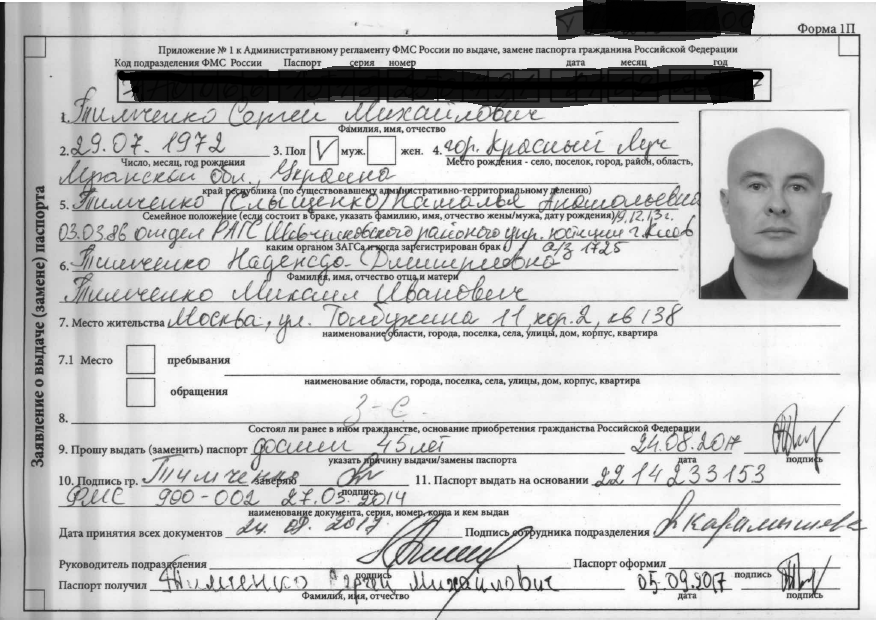 Форма 1П
Приложение № 1 к Административному регламенту ФМС России по выдаче, замене паспорта гражданина Российской Федерации
Код подразделения ФМС России Паспорт серия номер дата месяц год
1. Тимченко Сергей Михайлович
Фамилия, имя, отчество
2. 29.07.1972 3. Пол V муж. жен. 4. гор. Красный Луч
Число, месяц, год рождения Место рождения - село, поселок, город, район, область,
обл., Украина
край республика (по существовавшему административно-территориальному делению)
5. Тимченко Наталья Анатольевна
Семейное положение (если состоит в браке, указать фамилию, имя, отчество жены/мужа, дату рождения) 19.12.13г.
03.03.86 отдел РАГС Шевченковского районного упр. юстиции г. Киев
каким органом ЗАГСа и когда зарегистрирован брак а/з 1725
6. Тимченко Надежда Дмитриевна
Фамилия, имя, отчество отца и матери
Тимченко Михаил Иванович
7. Место жительства Москва, ул. Толбухина 11, кор. 2, кв 138
наименование области, города, поселка, села, улицы, дом, корпус, квартира
7.1 Место пребывания
наименование области, города, поселка, села, улицы, дом, корпус, квартира
обращения
8.
Состоял ли ранее в ином гражданстве, основание приобретения гражданства Российской Федерации
9. Прошу выдать (заменить) паспорт 45 лет 24.08.2017
указать причину выдачи/замены паспорта дата подпись
10. Подпись гр. Тимченко заверяю 11. Паспорт выдать на основании 2214233153
подпись
ФМС 900-002 27.03.2014
наименование документа, серия, номер, когда и кем выдан
Дата принятия всех документов 24.08.2017 Подпись сотрудника подразделения
Руководитель подразделения Паспорт оформил
подпись подпись
Паспорт получил Тимченко Сергей Михайлович 05.09.2017
Фамилия, имя, отчество дата подпись
Заявление о выдаче (замене) паспорта